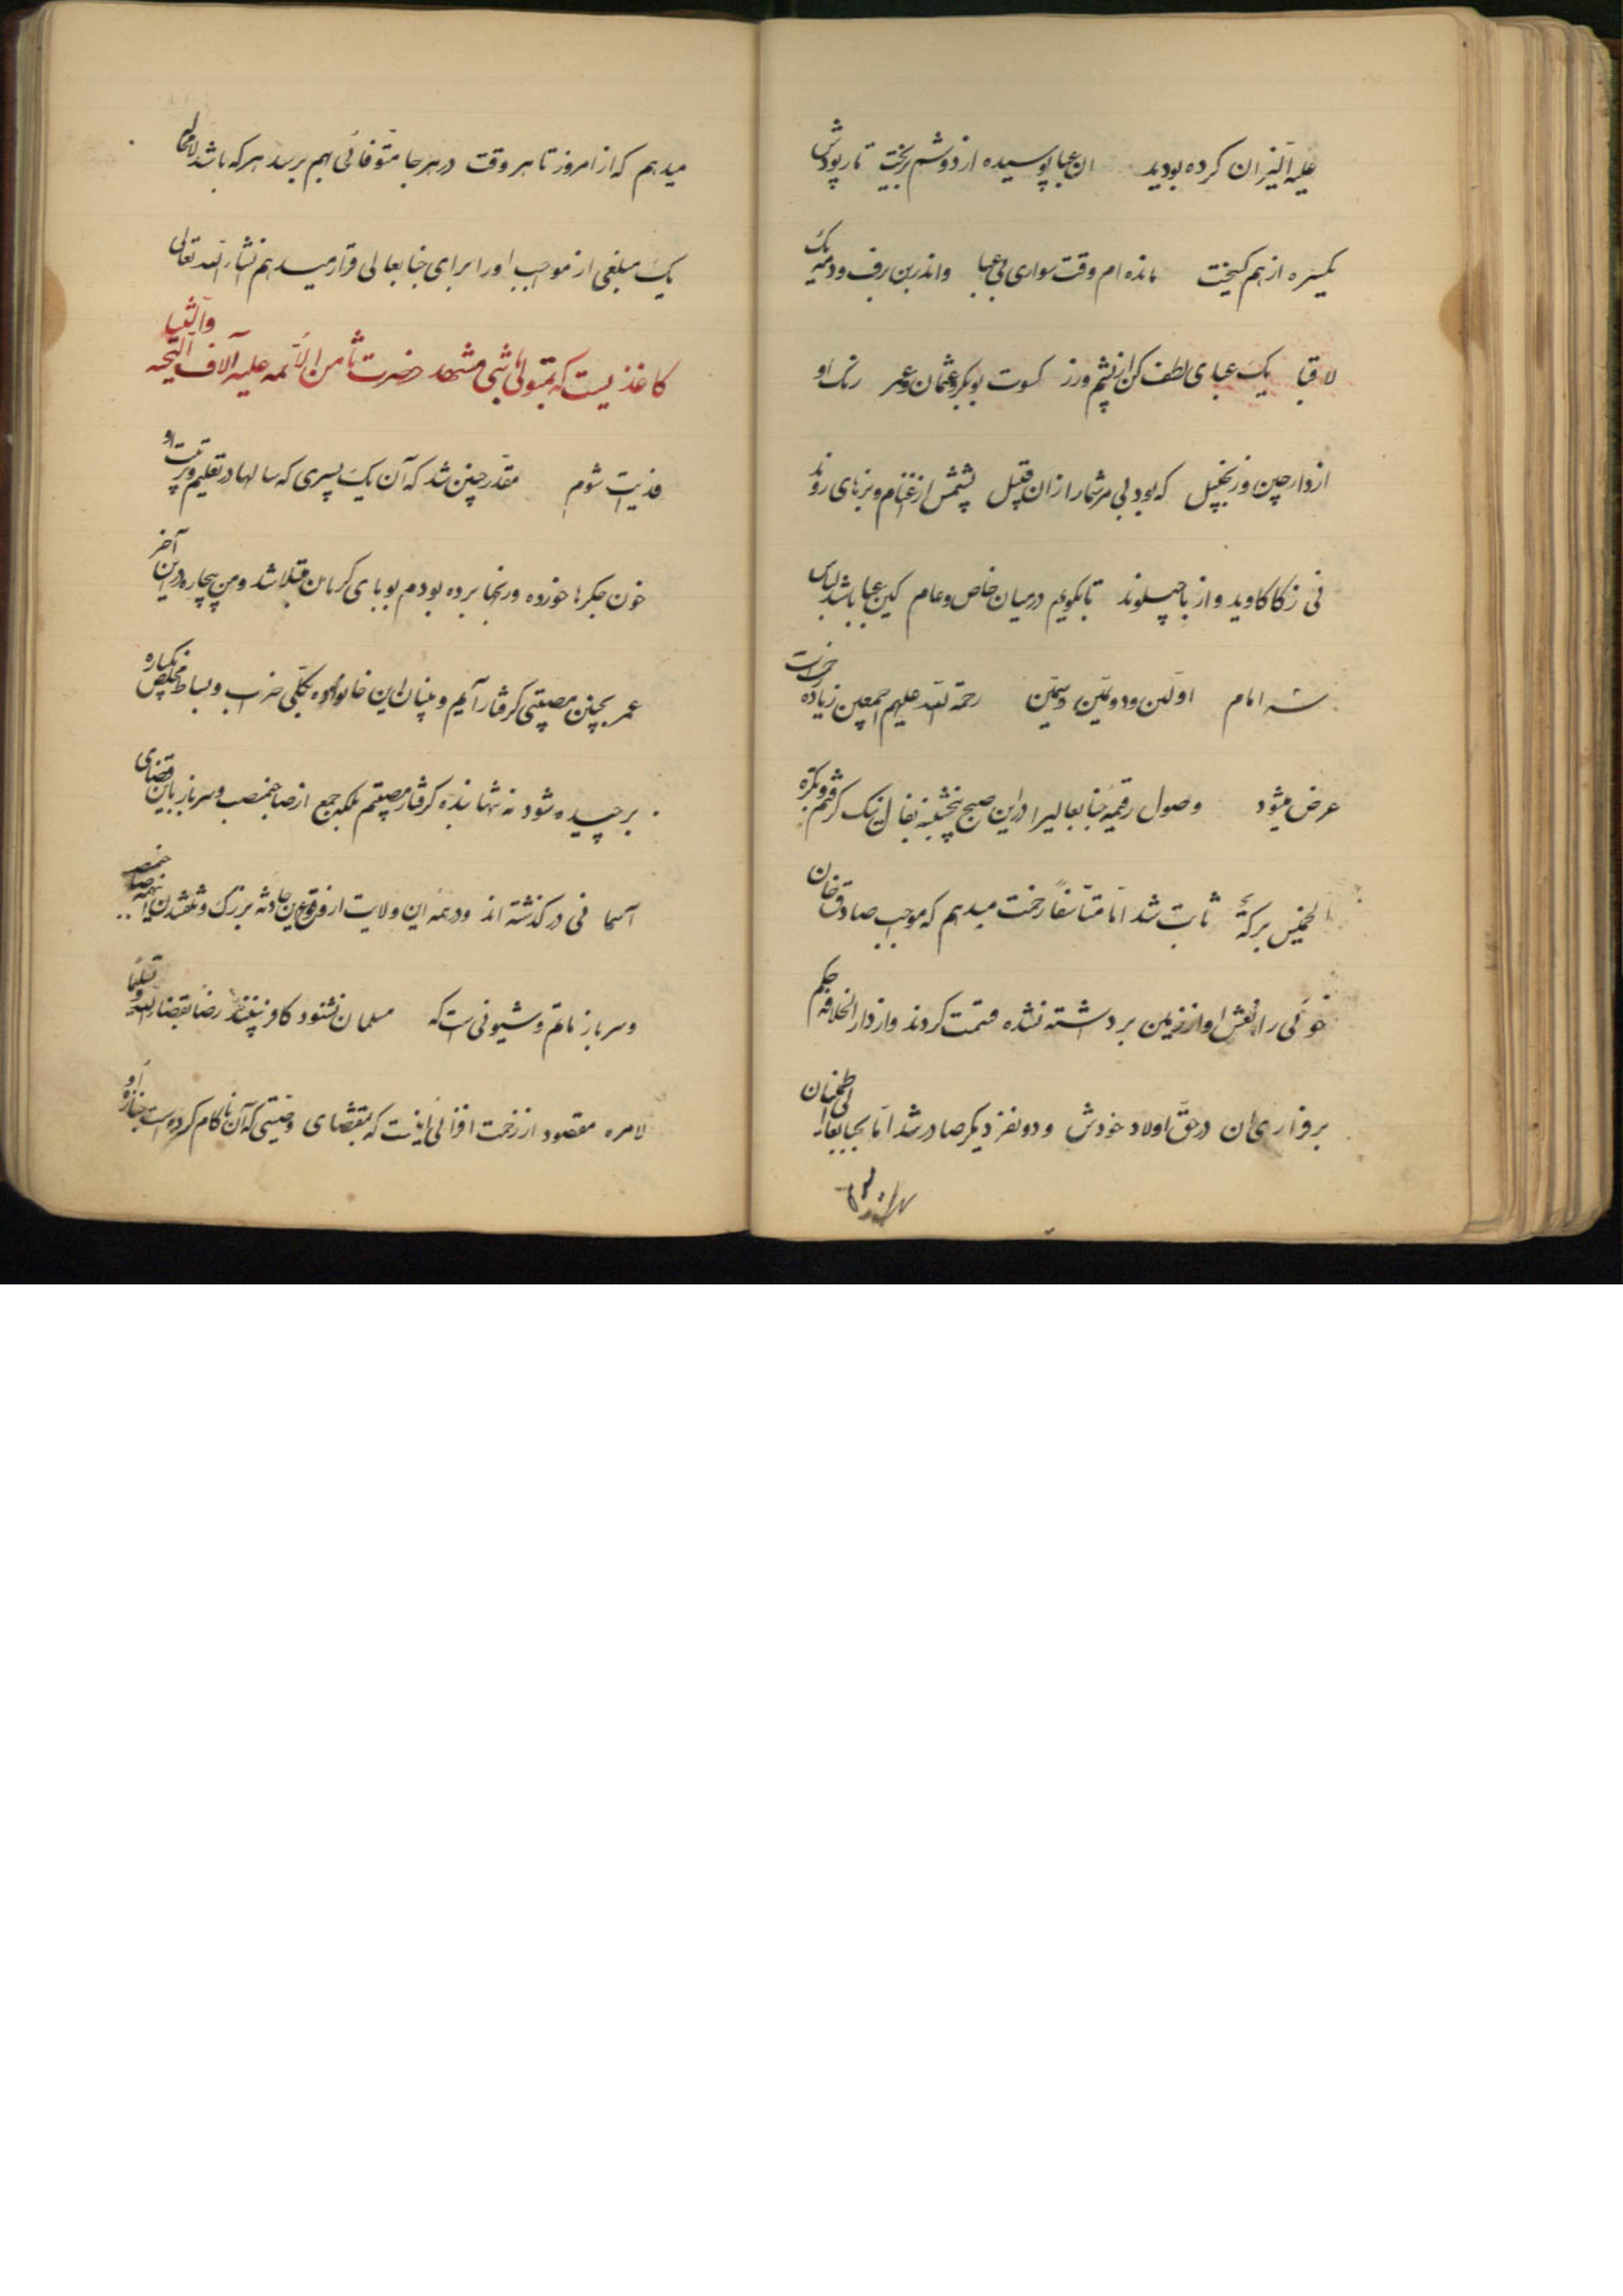 علیه النیران کرده بودید ان عبا پوسیده از دوشم بریخت تار پودش
یکسره از هم گسیخت مانده ام وقت سواری بی عبا واندرین برف ودمه یک
لا قبا یک عبای لطف کن از پشم ورز کسوت بوبکر وعثمان وعمر رنک او
از دارچین وزنجبیل که بود بی مر شما را زان قبیل پشمش از غنام وبزهای روند
نی ز کاکاوید واز باجلوند تا بگویم درمیان خاص وعام کین عبا باشد لباس
سه امام اولین ودومین وسیمین رحمة الله علیهم اجمعین زیاده
عرض میشود وصول رقیمه جنابعالیرا در این صبح پنجشنبه بفال نیک گرفتم وبکره
الخمیس برکة ثابت شد اما متأسفا زحمت میدهم که موجب صادق خان
خوئی را نعش او از زمین برداشته نشده قسمت کردند واز دار الخلافه حکم
برقراری ان در حق اولاد خودش ودو نفر دیکر صادر شد اما بجنابعالی اطمینان
میدهم که از امروز تا هر وقت در هر جا متوفائی بهم برسد هر که باشد لامحاله
یک مبلغی از موجب او را برای جنابعالی قرار میدهم انشاء الله تعالی
کاغذیست که بمتولی باشی مشهد حضرت ثامن الائمه علیه آلاف التحیه والثنا
فدایت شوم مقدر چنین شد که آن یک پسری که سالها در تعلیم وتربیت او
خون جکرها خورده ورنجها برده بودم بوبای کرمان مبتلا شد ومن بیچاره در این آخر
عمر بچنین مصیبتی گرفتار آیم وبنیان این خانواده بکلی خراب وبساط مخلص یکباره
برچیده شود نه تنها بنده گرفتار مصیبتم بلکه جمع از صاحبمنصب وسرباز باین قضای
آسمانی در گذشته اند ودر همه این ولایت از وقوع این حادثه بزرک وتلف شدن اینهمه صاحبمنصب
وسرباز ماتم وشیونی است که مسلمان نشنود کافر نبیند رضا بقضاء الله وتسلیما
لامره مقصود از زحمت افزائی اینست که بمقتضای وصیتی که آن ناکام کرده است جنازه او